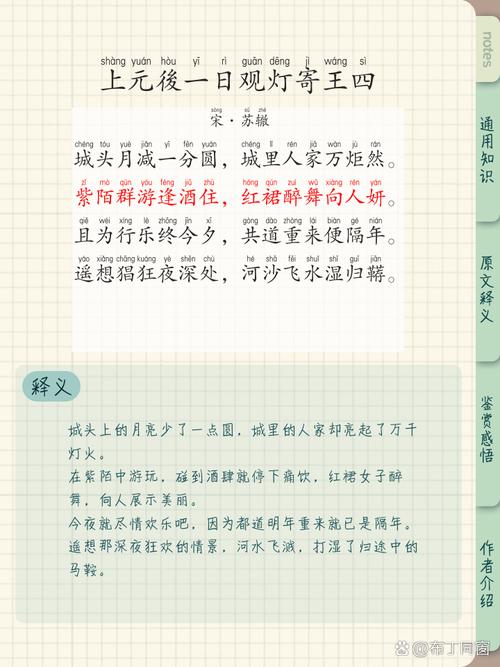 shàng yuán hòu yī rì guān dēng jì wáng sì
上元後一日观灯寄王四
sòng sū zhé
宋·苏辙
chéng tóu yuè jiǎn yī fēn yuán chéng lǐ rén jiā wàn jù rán
城头月减一分圆，城里人家万炬然。
zǐ mò qún yóu féng jiǔ zhù hóng qún zuì wǔ xiàng rén yán
紫陌群游逢酒住，红裙醉舞向人妍。
qiě wéi xíng lè zhōng jīn xī gòng dào chóng lái biàn gé nián
且为行乐终今夕，共道重来便隔年。
yáo xiǎng chāng kuáng yè shēn chù hé shā fēi shuǐ shī guī jiān
遥想猖狂夜深处，河沙飞水湿归鞯。
释义
城头上的月亮少了一点圆，城里的人家却亮起了万千
灯火。
在紫陌中游玩，碰到酒肆就停下痛饮，红裙女子醉
舞，向人展示美丽。
今夜就尽情欢乐吧，因为都道明年重来就已是隔年。
遥想那深夜狂欢的情景，河水飞溅，打湿了归途中的
马鞍。
notes
通用知识
原文释义
鉴赏感悟
作者介绍
@布丁同窗